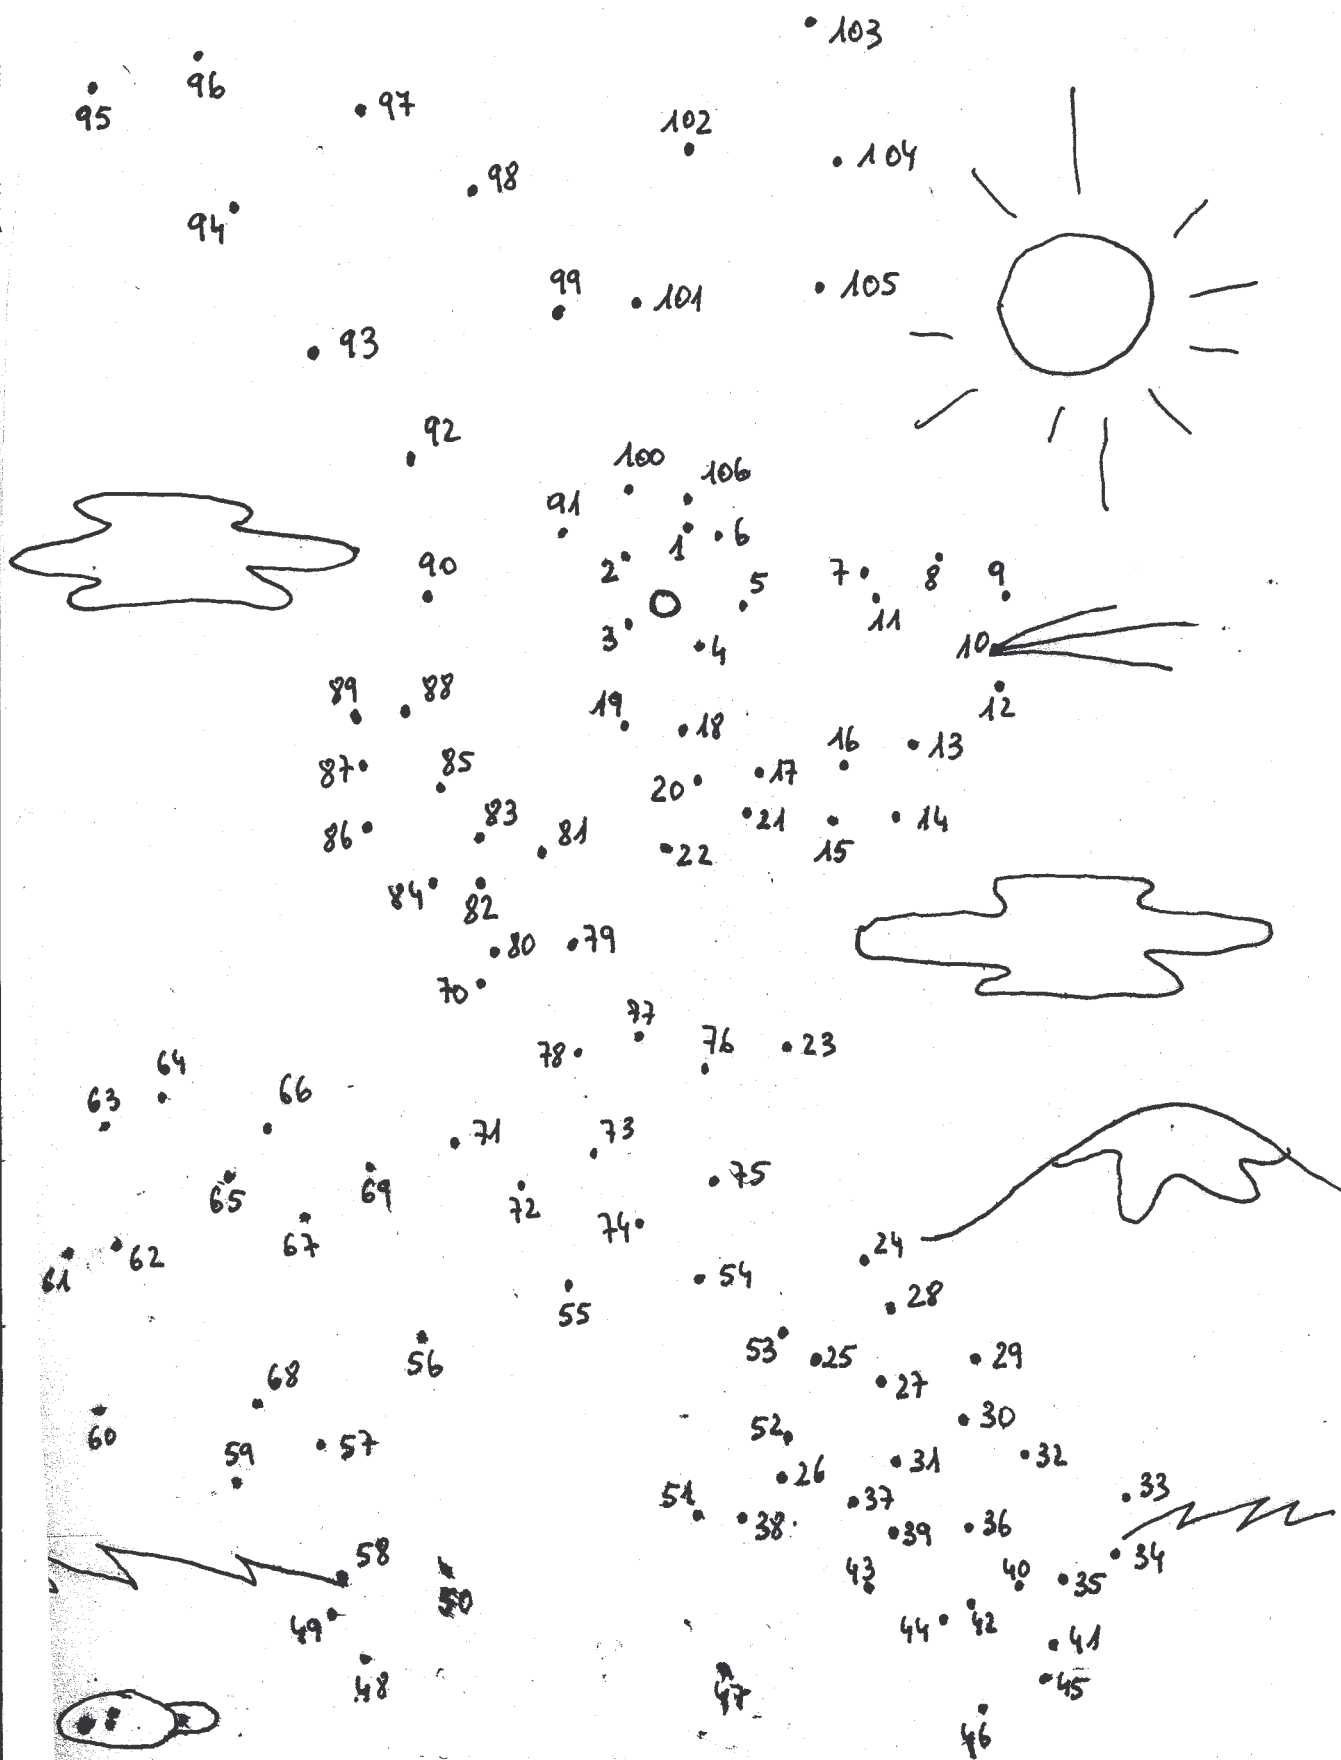 103
96
95
97
102
104
98
94
99
101
105
93
92
100
106
91
6
1
2
90
5
7
8
9
11
3
4
10
89
88
19
18
12
16
13
87
85
20
17
86
83
81
21
14
22
15
84
82
80
79
70
77
78
76
23
64
63
66
71
73
65
69
72
75
67
74
61
62
24
54
28
55
53
25
29
56
27
68
60
52
30
59
57
31
32
26
51
38
37
33
39
36
58
43
40
35
34
50
49
44
42
41
48
47
45
46